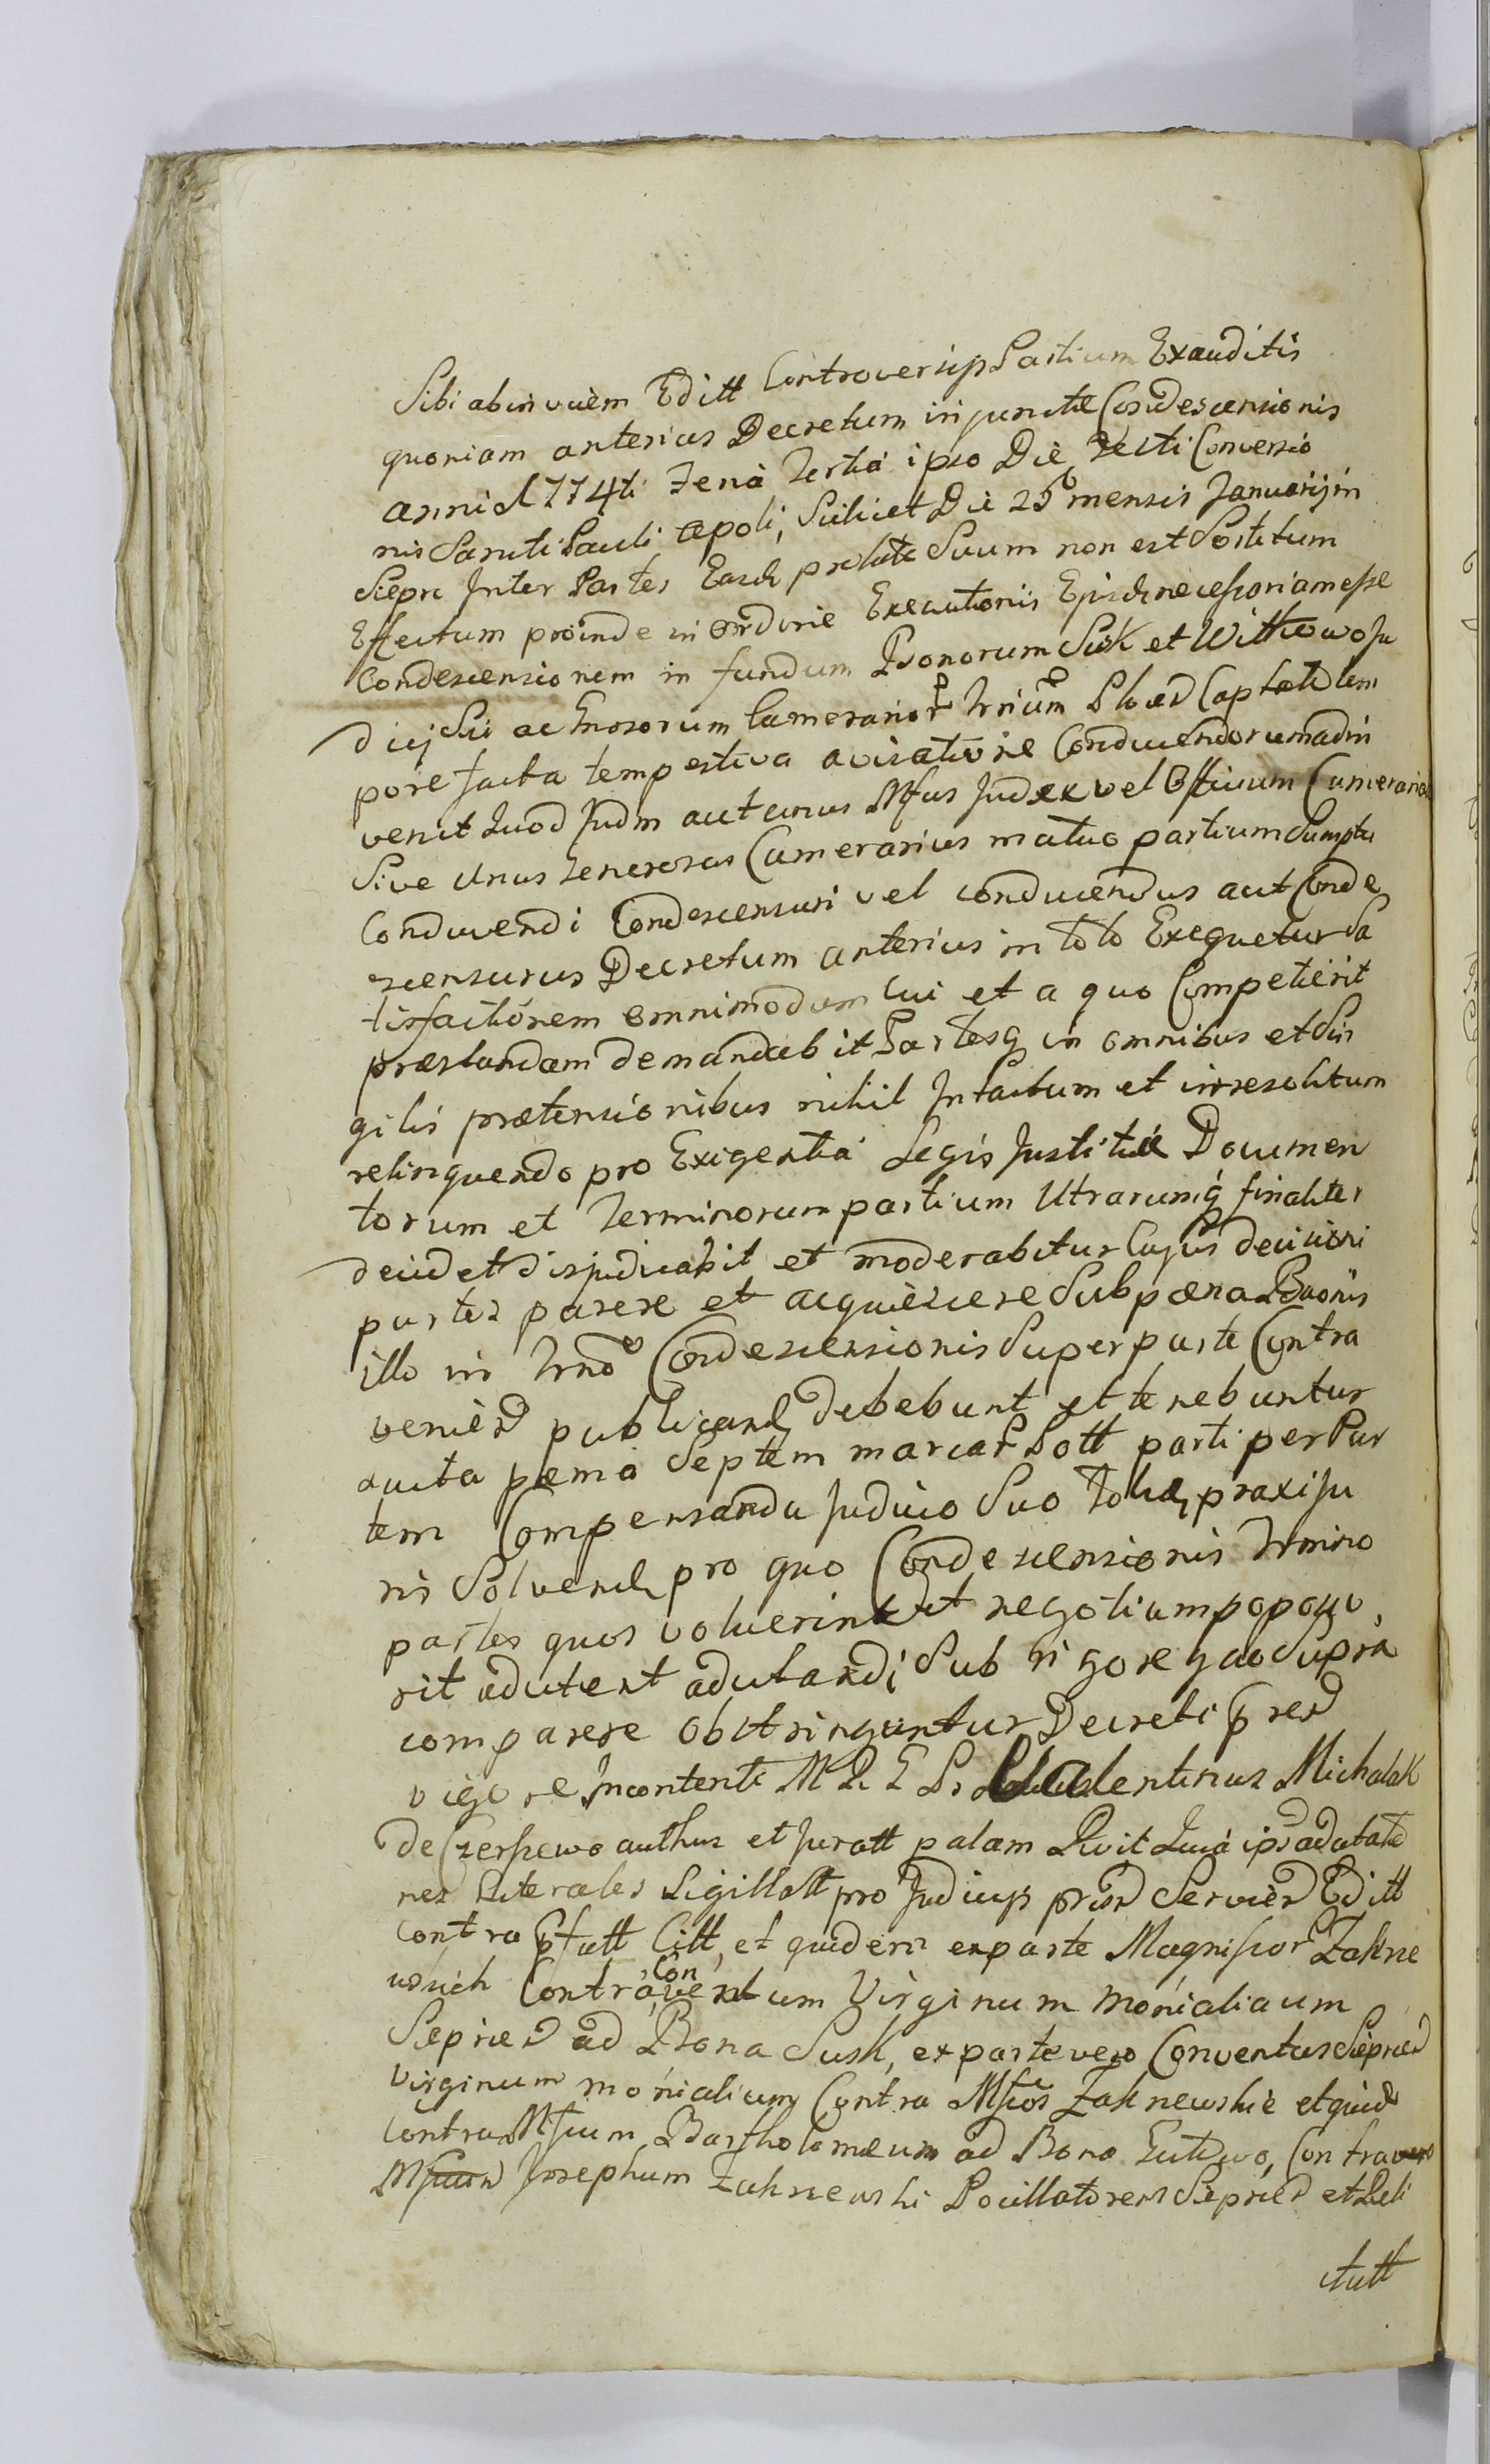 Sibi ab invicem Editt Controversijs Partium Exauditis
quoniam anterius Decretum injunctæ Condescensionis
anni 1774ti Feria Tertia ipso Die Festi Conversio
nis Sancti Pauli Apoli, Scilicet Die 25 mensis Januarij in
Siepre Inter Partes Easd prolate Suum non est Sortitum
Effectum proinde in ordine Executionis Ejusd necessoriam esse
Condescensionem in fundum Bonorum Susk et Wittkowo Ju
dicij Sui ac Gnosorum Camerarior Trrium Ploced Captato tem
pore facta tempestiva avisatione Conducendorum adin
venit Quod Judm aut unus Mfus Judex vel Officium Camerariale
Sive Unus Generosus Camerarius mutuo partium Sumptu
Conducendi Condescensuri vel conducendus aut Conde
scensurus Decretum anterius in toto Exequetur Sa
tisfactionem omnimodam Cui et a quo Competierit
præstandam demandabit Partesq in omnibus et Sin
gulis prætensionibus nihil Intactum et irresolutum
relinquendo pro Exigentia Legis Justitiæ Documen
torum et Terminorum partium Utrarumq finaliter
decidet disjudicabit et moderabitur Cujus decisioni
partes parere et acquiescere Sub pæna Bnonis
illo in Trno Condescensionis Super parte Contra
venied publicand debebunt et tenebuntur
Lucta pæma Septem marcar Pott parti per Par
tem Compensanda Judicio Suo Tolied praxi Ju
ris Solvend pro quo Condescensionis Termino
partes quos voluerint et negotium popos
rit adcitent adcitandi Sub rigore quo Supra
comparere obstringuntur Decreti pnsed
vigore Incontenti M R E P. Valentinus Michalak
de Czerszewo authus et Juratt palam Rcit Quia ipse adcitatio
nes Literales Sigillatt pro Judicijs prised Servied Editt
contra pfatt Citt, et quidem exparte Magnificor Zakrze
wskich Contra Conventum Virginum monialiaum
Sieprced ad Bona Susk, ex parte vero Conventus Sieprced
Virginum monialium Contra Mfcos Zakrzewskie et quid
contra Mfcum Bartholomæum ad Bona Gutowo, Contra vero
Mfcum Josephum Zakrzewski Pocillatorem Sieprced et Reli